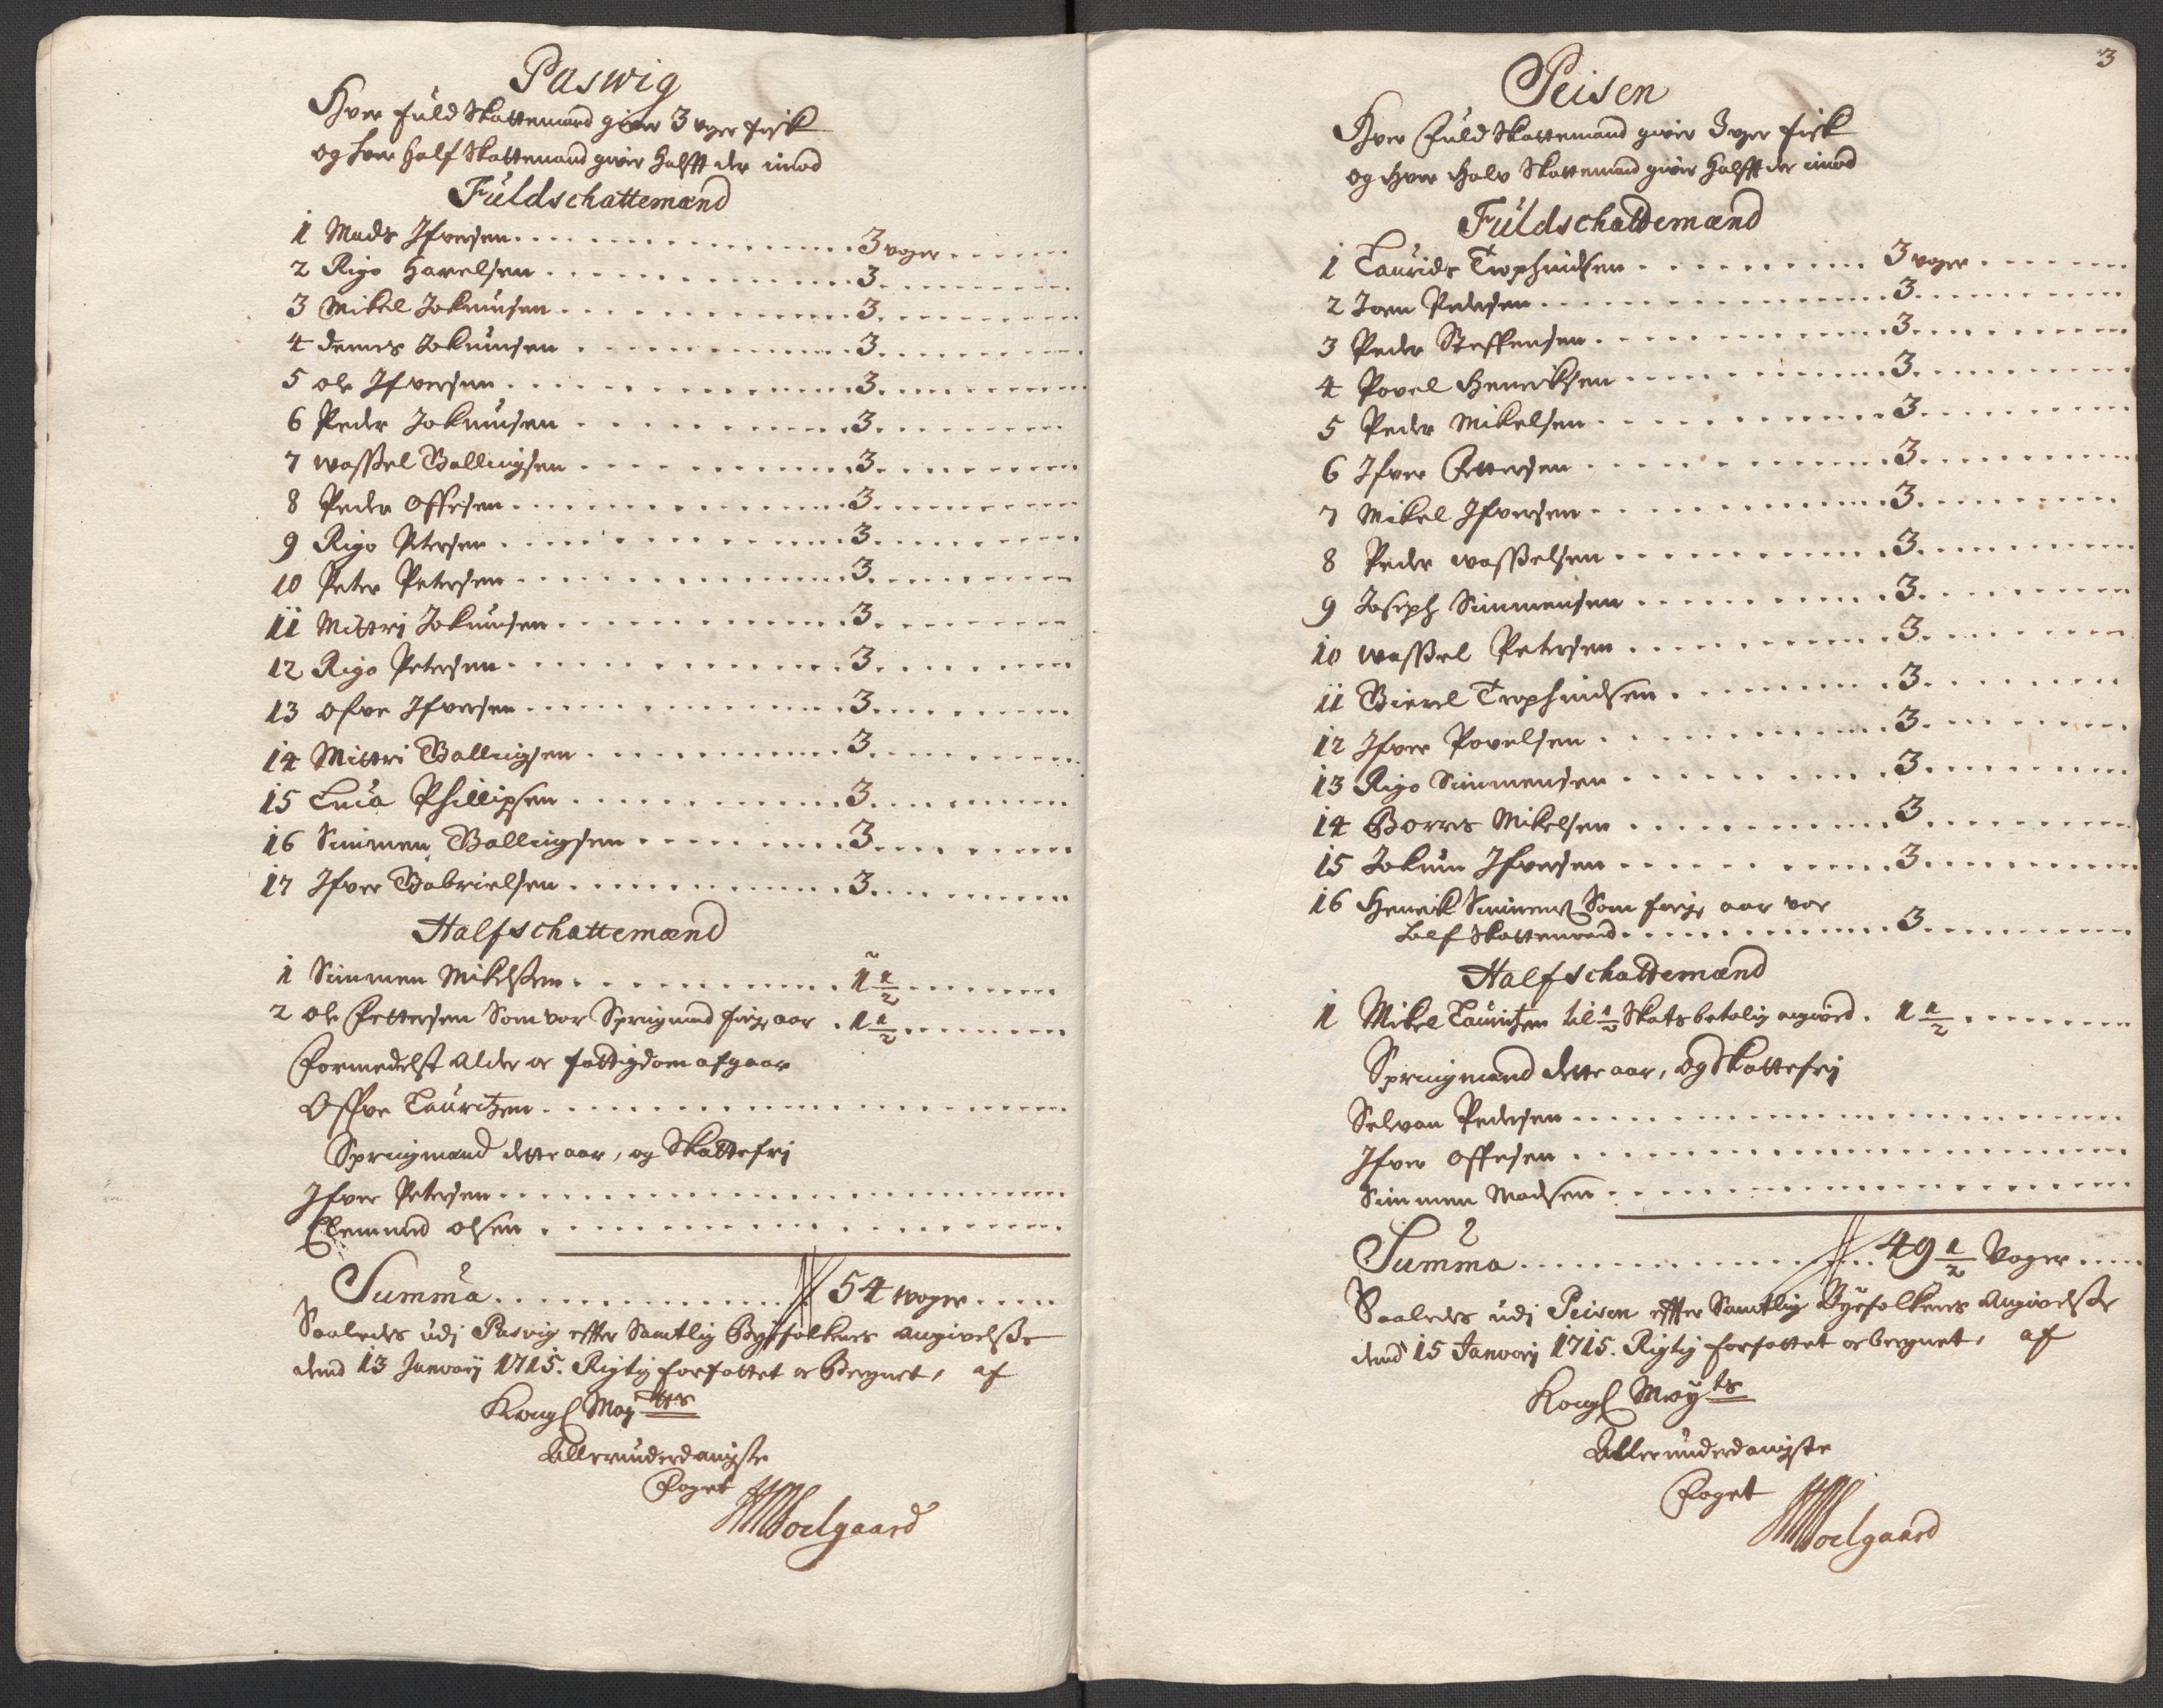 Paswig
Hver Fuld Skattemand giver 3 woger fisk
og hver Half Skattemand giver Halfft der imod
Fuldschattemænd
1 Mads Ifversen 3 woger
2 Rigo Havelsen 3
3 Mikel Jokumsen 3
4 Demes Jokumsen 3
5 Ole Ifversen 3
6 Peder Jokumsen 3
7 Wassel Gallugsen 3
8 Peder Offesen 3
9 Rigo Petersen 3
10 Peter Petersen 3
11 Mittri Jokumsen 3
12 Rigo Petersen 3
13 Ofve Ifversen 3
14 Mittri Gallugsen 3
15 Luca Phillipsen 3
16 Simmen Gallugsen 3
17 Ifver Gabrielsen 3
Halfschattemænd
1 Simmen Mikelsen 1 1/2
2 Ole Pettersen Som var Springmand forige aar 1 1/2
Formedelst Alder oc fattigdom afgaar
Offve Lauritzen
Springmænd dette aar, og Skattefrj
Ifver Petersen
Clemmed Olsen
Summa 54 woger
Saaledes udj Pasvig effter Samtlig Byefolkenes angivelsse
dend 13 Janvarij 1715. Rigtig forfattet oc Beregnet, af
Kongl May tts
Allerunderdanigste
Foget
Soelgaard
3
Peisen
Hver Fuld Skattemand giver 3 woger fisk
og Hver Halv Skattemand giver Halfft der imod
Fuldschattemænd
1 Laurids Trophindsen 3 woger
2 Joen Pedersen 3
3 Peder Steffensen 3
4 Povel Henriksen 3
5 Peder Mikelsen 3
6 Ifver Pettersen 3
7 Mikel Ifversen 3
8 Peder Wasselsen 3
9 Joseph Simmensen 3
10 Wassel Petersen 3
11 Gierel Trophindsen 3
12 Ifver Povelsen 3
13 Rigo Simmensen 3
14 Borres Mikelsen 3
15 Jokum Ifversen 3
16 Henrik Simmens Som forige aar var
Half Skattemand 3
Halfschattemænd
1 Mikel Lauritzen til 1/2 Skats betaling angived 1 1/2
Springmænd dette aar, og Skattefrj
Selvan Pedersen
Ifver Offesen
Simmen Madsen
Summa 49 1/2 Voger
Saaledes udj Peisen effter Samtlig Byefolkenes Angivelsse
dend 15 Janvarij 1715. Rigtig forfattet oc beregnet, af
Kongl May ts
Allerunderdanigste
Foget
Soelgaard